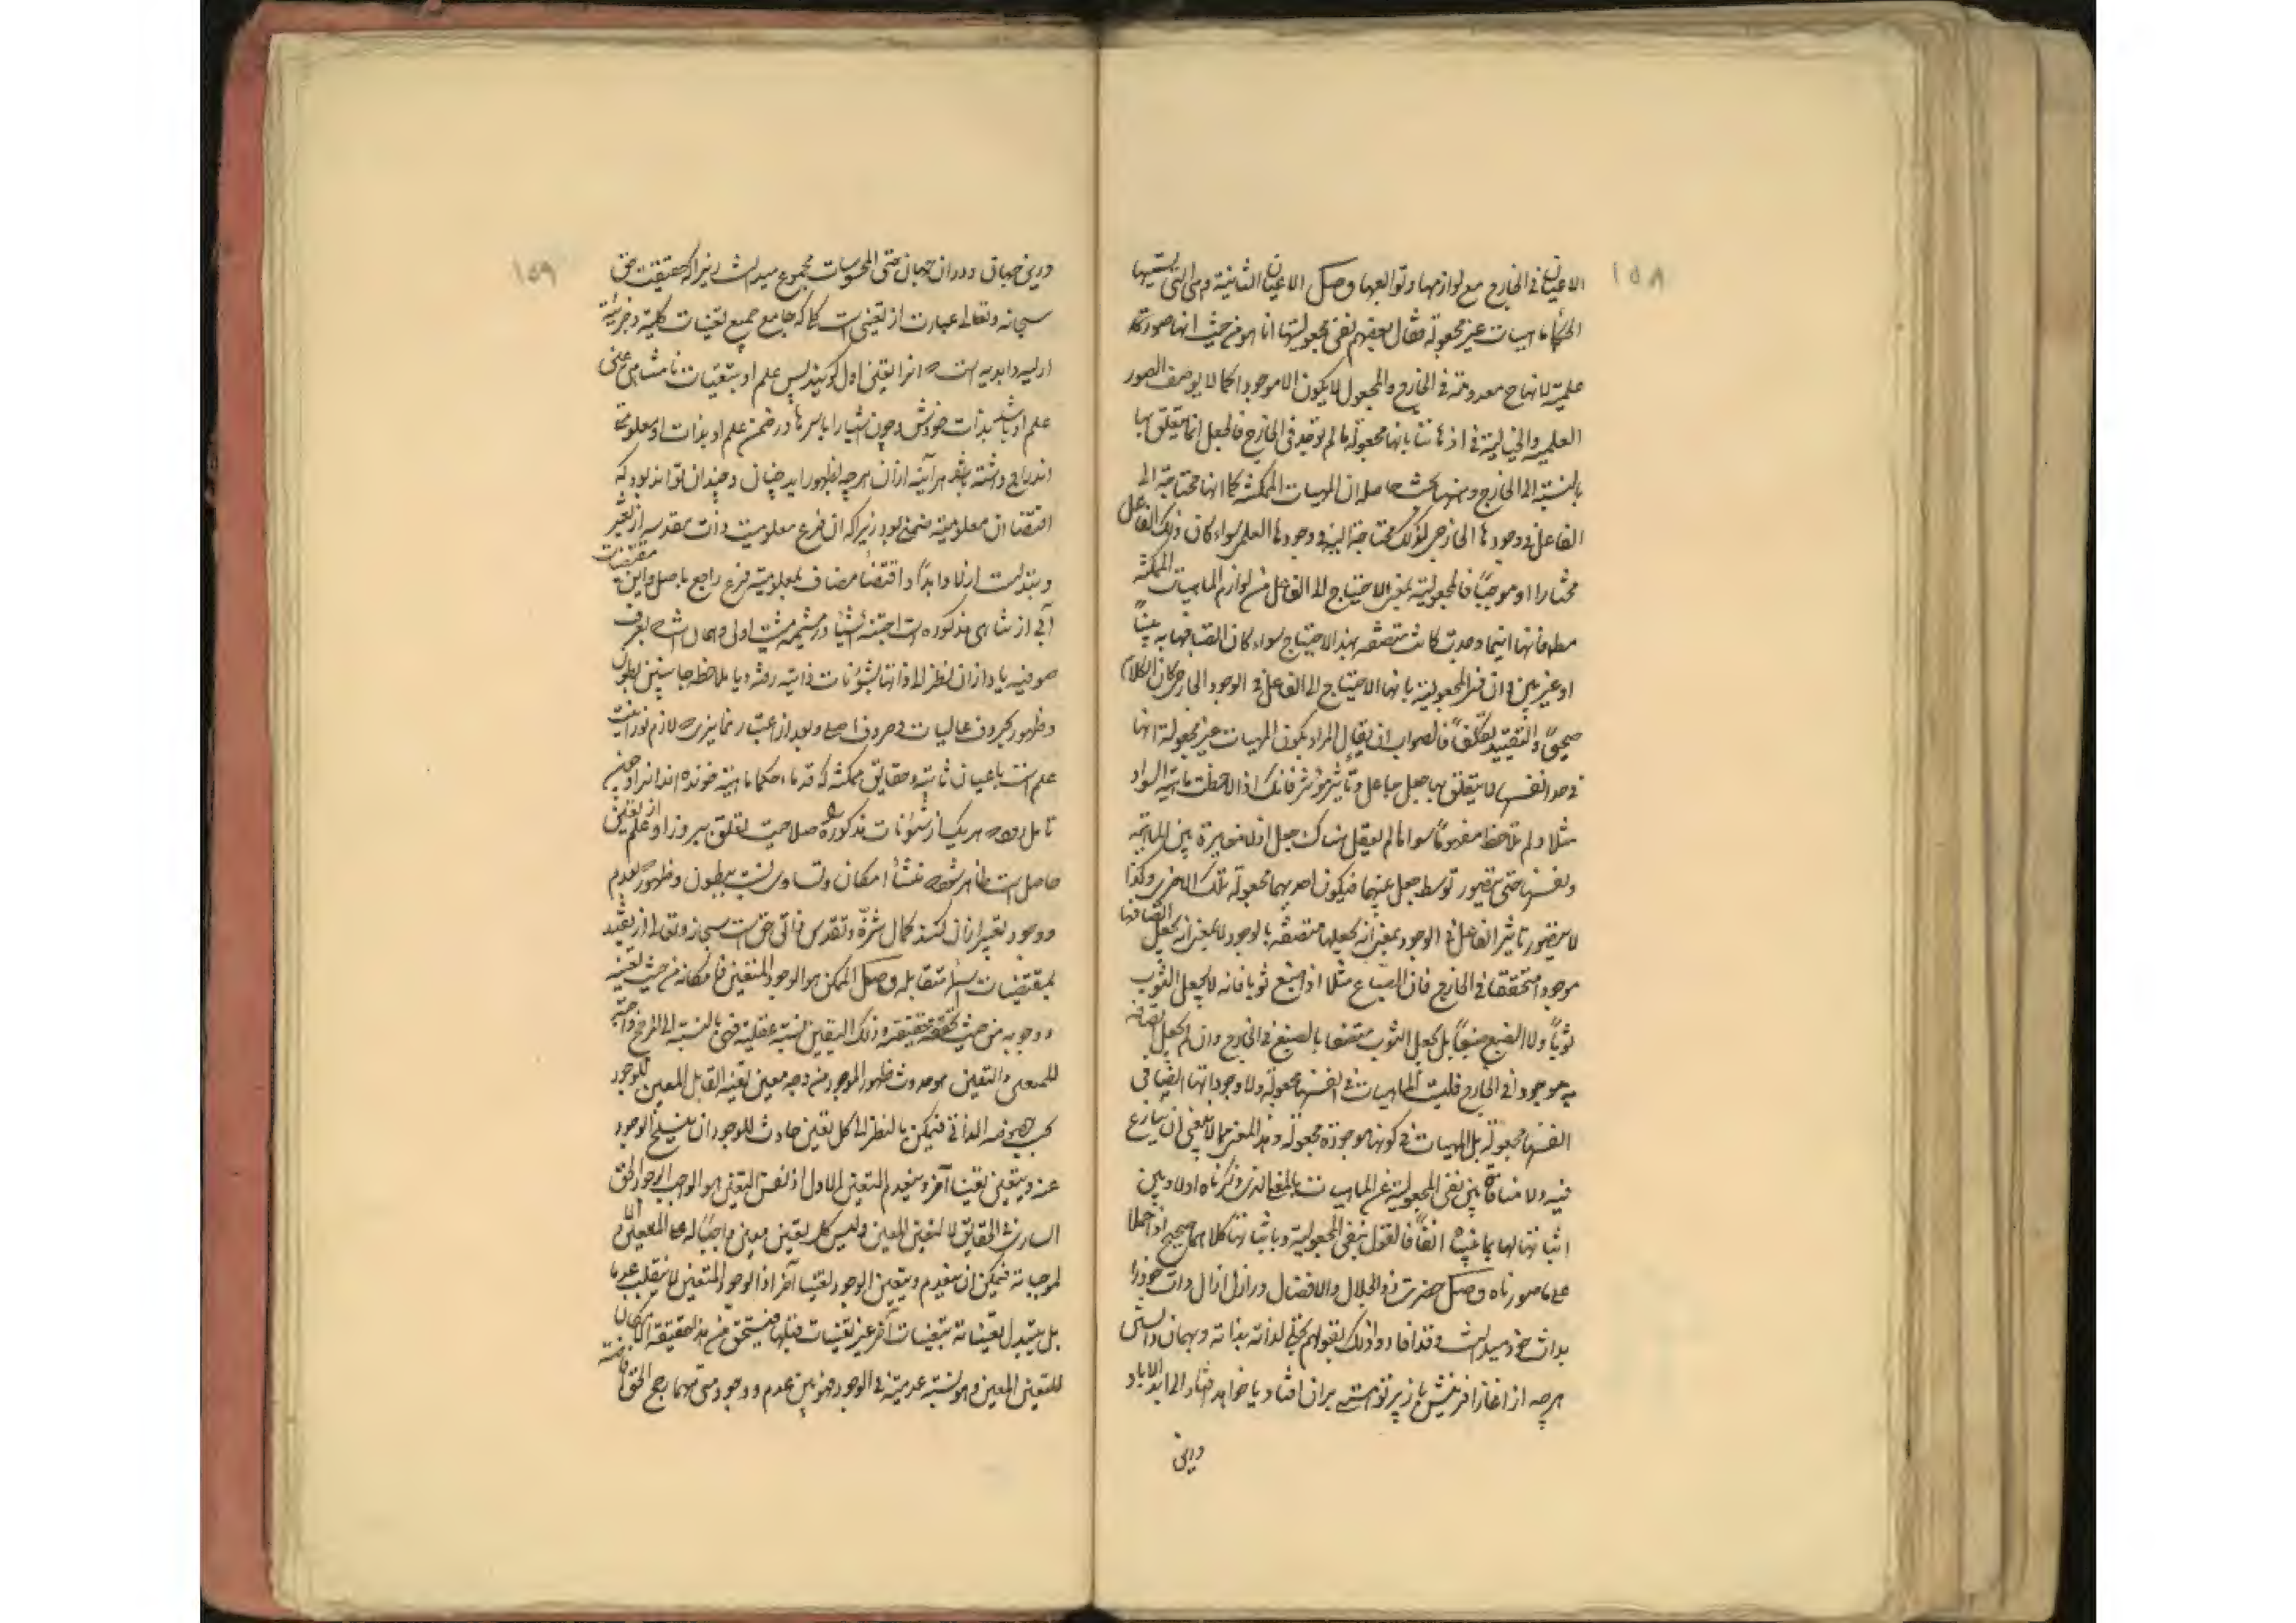 ١٥٨
الاعيان فى الخارج مع لوازمها وتوابعها وصل الاعيان الثابتة وهى التى يسميها
الحكماء ماهيات غير مجعولة فقال بعضهم نفى مجعوليتها انما هو من حيث انها صورة
علمية لانها ح معدومة فى الخارج والمجعول لا يكون الا موجودا كما لا يوصف الصور
العلمية والخيالية فى اذهاننا بانها مجعولة ما لم توجد فى الخارج فالجعل انما يتعلق بها
بالنسبة الى الخارج وههنا بحث حاصله ان المهيات الممكنة كما انها محتاجة الى
الفاعل فى وجودها الخارجى كذلك محتاجة اليه فى وجودها العلمى سواء كان ذلك الفاعل
مختارا او موجبا فالمجعولية بمعنى الاحتياج الى الفاعل من لوازم الماهيات الممكنة
مط فانها اينما وجدت كانت متصفة بهذا الاحتياج سواء كان اتصافها به بينا
او غير بين فان فسر المجعولية بانها الاحتياج الى الفاعل فى الوجود الخارجى كان الكلام
صحيحا والتقييد تكلفا فالصواب ان يقال المراد بكون المهيات غير مجعولة انها
فى حد انفسها لا يتعلق بها جعل جاعل وتاثير مؤثر فانك اذا لاحظت ماهية السواد
مثلا ولم تلاحظ مفهوما سواها لم يعقل هناك جعل اذ لا مغايرة بين الماهية
ونفسها حتى يتصور توسط جعل بينهما فيكون احديهما مجعولة تلك الاخرى وكذا
لا يتصور تاثير الفاعل فى الوجود بمعنى انه يجعلها متصفة بالوجود لا بمعنى انه يجعل اتصافها
موجودا متحققا فى الخارج فان الصباغ مثلا اذا صبغ ثوبا فانه لا يجعل الثوب
ثوبا ولا الصبغ صبغا بل يجعل الثوب متصفا بالصبغ فى الخارج وان لم يجعل اتصافه
به موجودا فى الخارج فليست الماهيات فى انفسها مجعولة ولا وجوداتها ايضا فى
انفسها مجعولة بل المهيات فى كونها موجودة مجعولة وهذا المعنى مما لا ينبغى ان ينازع
فيه ولا منافاة بين نفى المجعولية عن الماهيات بالمعنى الذى ذكرناه اولا وبين
اثباتها لها بما بيناه انفا فالقول بنفى المجعولية وباثباتها كلاهما صحيح اذا حملا
على ما صورناه وصل حضرت ذو الجلال والافضال در ازل ازال ذات خود را
بذات خود ميدانست وقد افادوا ذلك بقولهم تجلى لذاته بذاته وبهمان دانستن
هرچه از اغاز افرينش باز پرتو هستى بران افتاد يا خواهد افتاد الى ابد الاباد
درين
١٥٩
درين جهان ودران جهان حتى المحسوسات مجموع ميدانست زيراكه حقيقت حق
سبحانه وتعالى عبارت از تعينى است كه جامع جميع تعينات كلية وجزئية
ازليه وابديه است وانرا تعين اول گويند پس علم او بتعينات نامتناهى عين
علم او باشد بذات خودش وچون اشيا را باسرها در ضمن علم او بذات او معلومية
اندراج داشته باشد هر آينه ازان هرچه بظهور ايد چنان وچندان تواند بود كه
اقتضا ان معلوميت ضمنى بود زيراكه ان فرع معلوميت ذات مقدسه از تغير
وتبدلست ازلا وابدا واقتضا مضاف بمعلوميت فرع راجع باصل واين مقتضيات
صوفيه يا دازان نظر الى ذاتها بشئونات ذاتيه رفته ويا ملاحظه جانبين بطون
وظهور بحروف عاليات وحروف اصلى وبعد از اعتبار نمايزى لازم نورانيت
علم است باعيان ثابته وحقايق ممكنه كه قدماء حكما ماهيته خوانده اند انرا وحين
تامل هر يك از شئونات مذكوره صلاحيت تعلق ببروز او علم از تعين
حاصل است منشأ امكان وتساوى نسبت ببطون وظهور كه بعدم
ووجود تعبير ازان كنند كمال شرف وتقدس ذاتى حق است سبحانه وتعالى از تقيد
بمقتضيات اسماء متقابله وصل الممكن هو الوجود المتعين فامكانه من حيث تعينه
ووجوبه من حيث حقيقته وذلك التعين نسبة عقلية فهى بالنسبة الى المرجح واجبة
للمعنى والتعين هو حدوث ظهور الوجود من وجه معين تعينه القابل المعين للوجود
بحسب خصوصه الذاتى فيمكن بالنظر الى كل تعين حادث للوجود ان ينسلخ الوجود
عنه ويتعين تعينا آخر وينعدم التعين الاول اذ نفس التعين هو الواجب الوجود الحق
السارى فى الحقايق لا لتعين المعين وليس كل تعين معين واجبا له على التعيين الا
لموجباته فيمكن ان ينعدم ويتعين الوجود تعينا آخر اذ الوجود المتعين لا ينقلب عدما
بل يتبدل تعيناته بتعينات آخر غير تعينات قبلها فيتحقق من هذا حقيقة الامكان
للتعين المعين وهو نسبة عدمية فى الوجود فهو بين عدم ووجود متى مهما رجح الحق